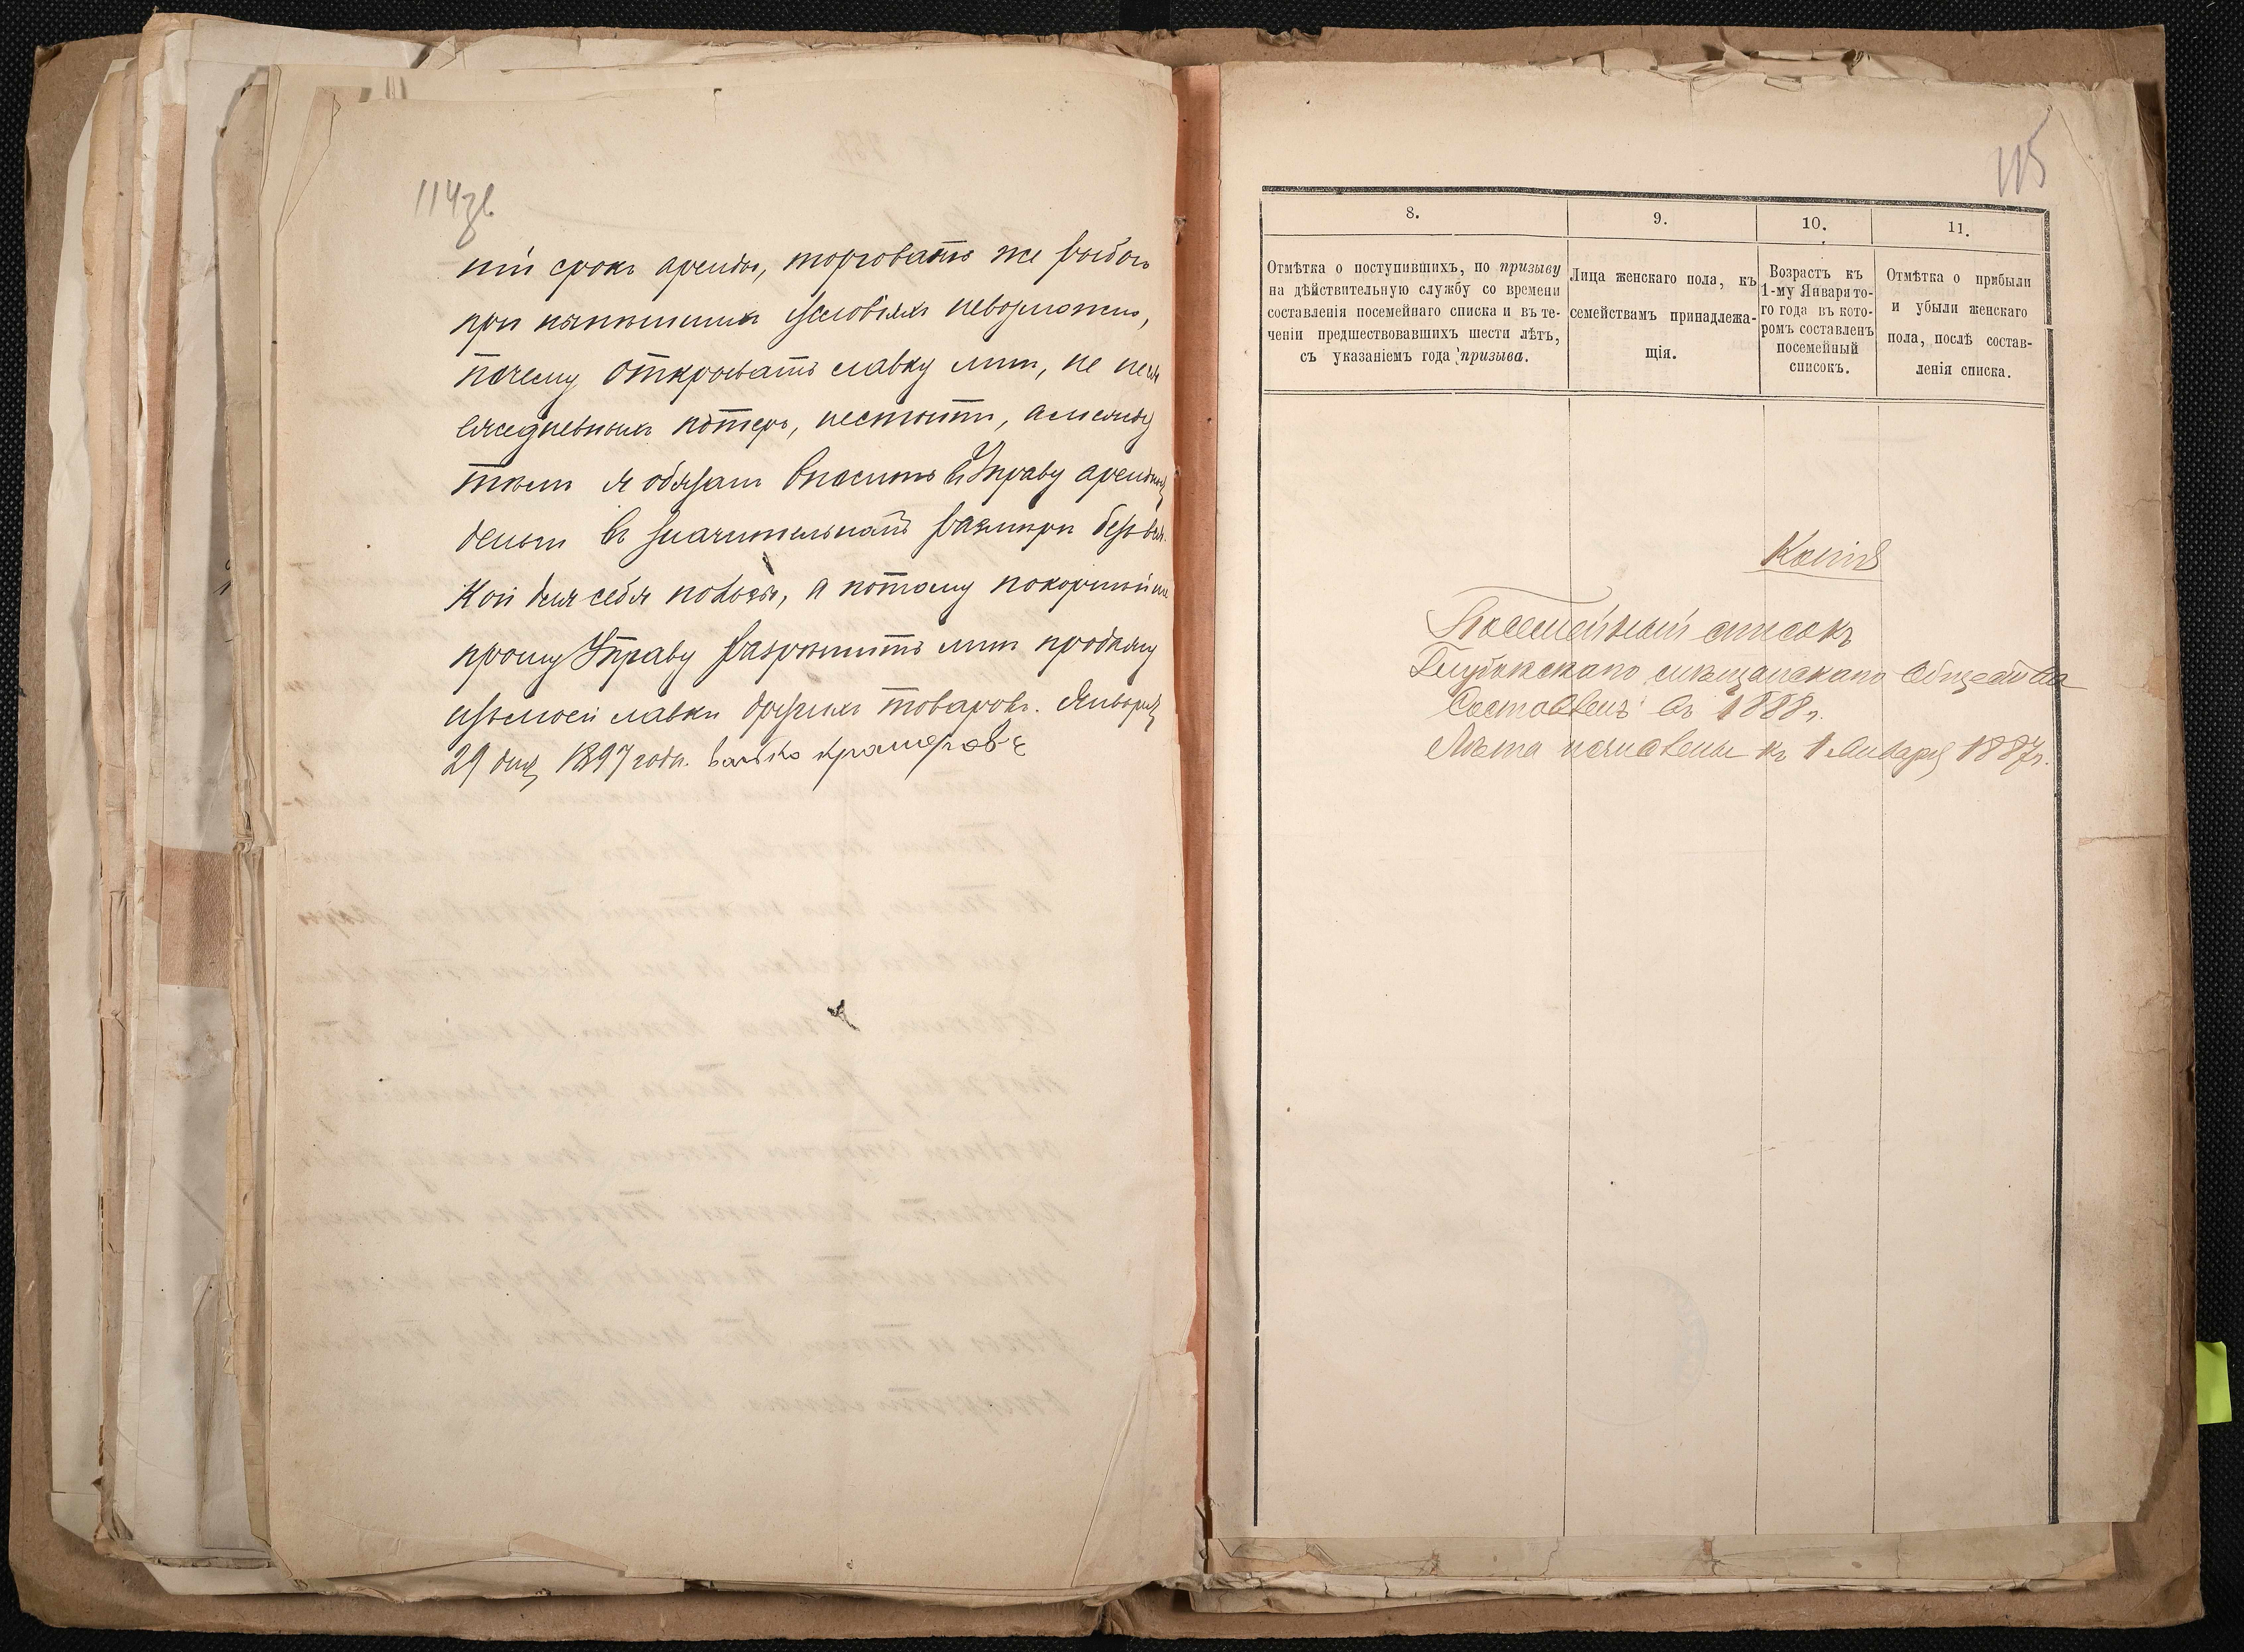 114зв
ній срокъ аренды, торговать же рыбою
при нынѣшнихъ условіяхъ невозможно,
почему открывать лавку мнѣ, не неся
ежедневныхъ потерь, нестоитъ, а между
тѣмъ я обязанъ вносить въ Управу арендныя
деньги въ значительномъ размѣрѣ безъ вся-
кой для себя пользы, а потому покорнѣйше
прошу Управу разрѣшить мнѣ продажу
изъ моей лавки другихъ товаровъ. Января
29 дня 1897 года.
115
8.
9.
10.
11.
Отмѣтка о поступившихъ, по призыву
на дѣйствительную службу со времени
составленія посемейнаго списка и въ те-
ченіи предшествовавшихъ шести лѣтъ,
съ указаніемъ года призыва.
Лица женскаго пола, къ
семействамъ принадлежа-
щія.
Возрастъ къ
1-му Января то-
го года въ кото-
ромъ составленъ
посемейный
списокъ.
Отмѣтка о прибыли
и убыли женскаго
пола, послѣ состав-
ленія списка.
Копія
Посемейный списокъ
Глубокскаго мѣщанскаго Общества
Составленъ въ 1888 г.
Лѣта исчислены къ 1 Января 1887 г.